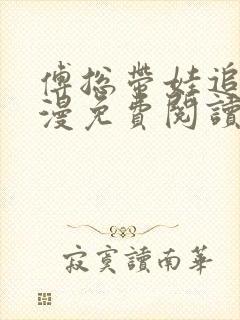 傅总带娃追
漫免費閱讀
寂寞讀南華